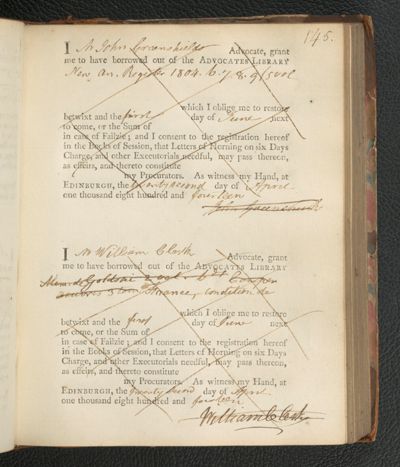 145.
I Mr John Greenshields Advocate, grant
me to have borrowed out of the ADVOCATES LIBRARY
New An. Register 1804. 6. 7. 8. 9 / 5 vol
which I oblige me to restore
betwixt and the first day of June next
to come, or the Sum of
in case of Failzie; and I consent to the registration hereof
in the Books of Session, that Letters of Horning on six Days
Charge, and other Executorials needful, may pass thereon,
as effeirs, and thereto constitute
my Procurators. As witness my Hand, at
EDINBURGH, the twentysecond day of April
one thousand eight hundred and fourteen
John Greenshields
I Mr William Clerk Advocate, grant
me to have borrowed out of the ADVOCATES LIBRARY
Mem. de Goldoni 2 vol.
Finance, condition de
which I oblige me to restore
betwixt and the first day of June next
to come, or the Sum of
in case of Failzie; and I consent to the registration hereof
in the Books of Session, that Letters of Horning on six Days
Charge, and other Executorials needful, may pass thereon,
as effeirs, and thereto constitute
my Procurators. As witness my Hand, at
EDINBURGH, the twenty second day of April
one thousand eight hundred and fourteen
William Clerk